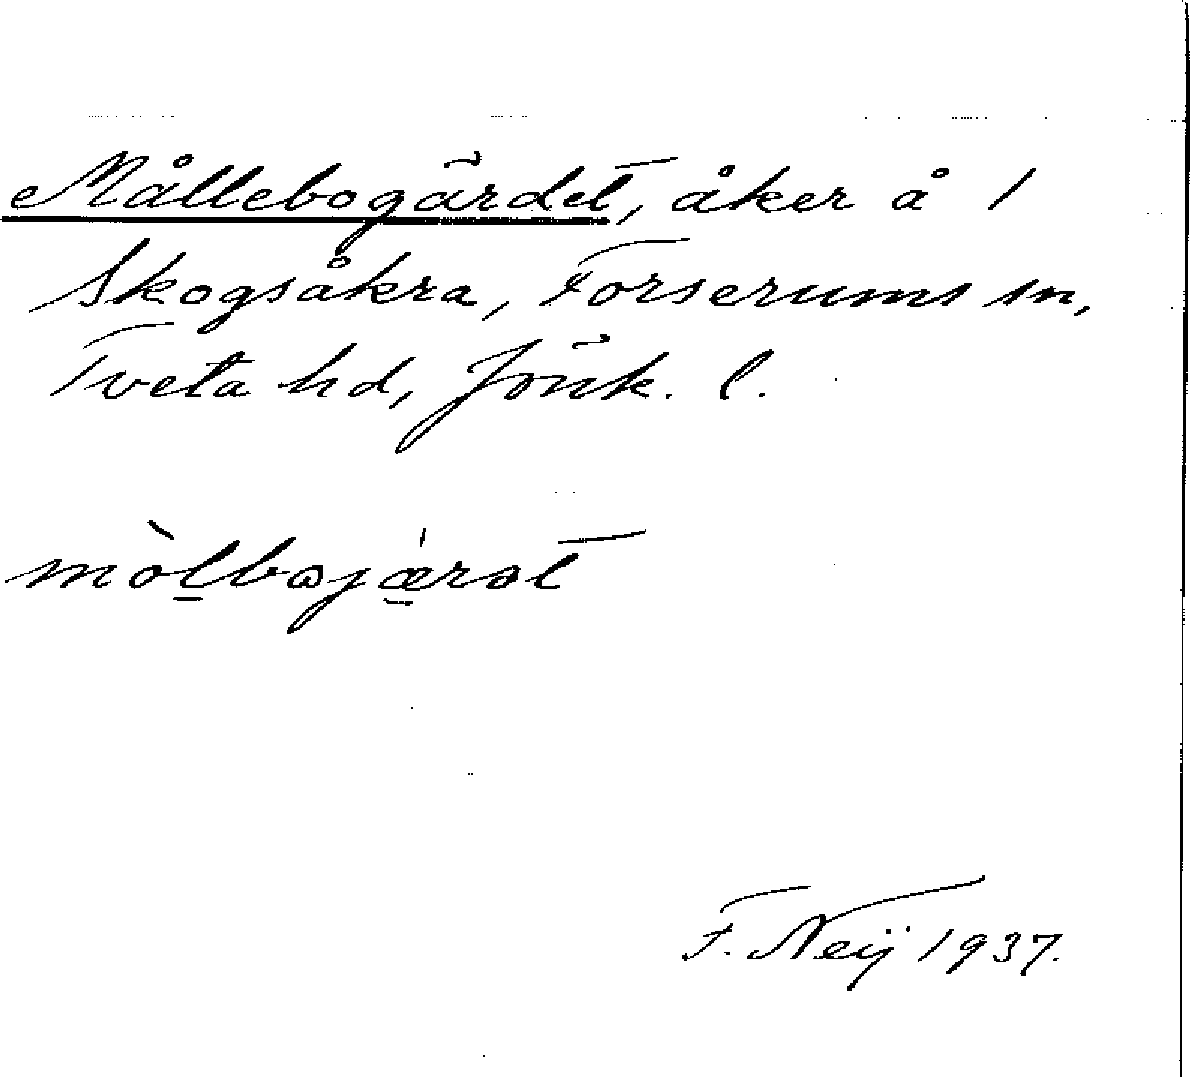 Mållebogärdet, åker å 1
Skogsåkra, Forserums sn,
Tveta hd, Jönk. l.
mòlbojærət
F. Neij 1937.